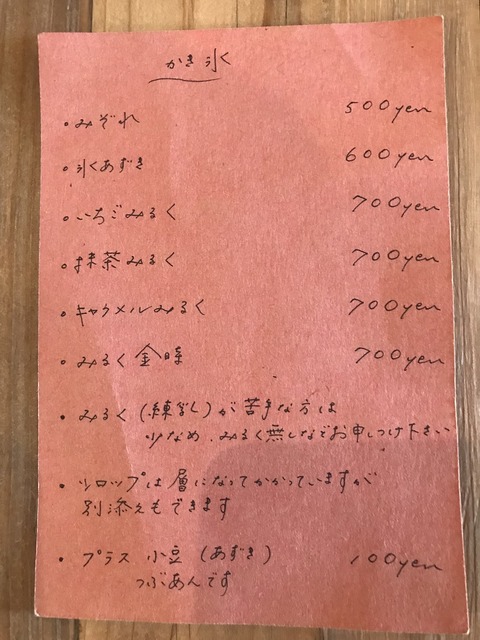 かき氷
・みぞれ 500yen
・氷あずき 600yen
・いちごみるく 700yen
・抹茶みるく 700yen
・キャラメルみるく 700yen
・みるく金時 700yen
・みるく(練乳)が苦手な方は
少なめ、みるく無しなどお申しつけ下さい
・シロップは層になってかかっていますが
別添えもできます
・プラス 小豆(あずき) 100yen
つぶあんです